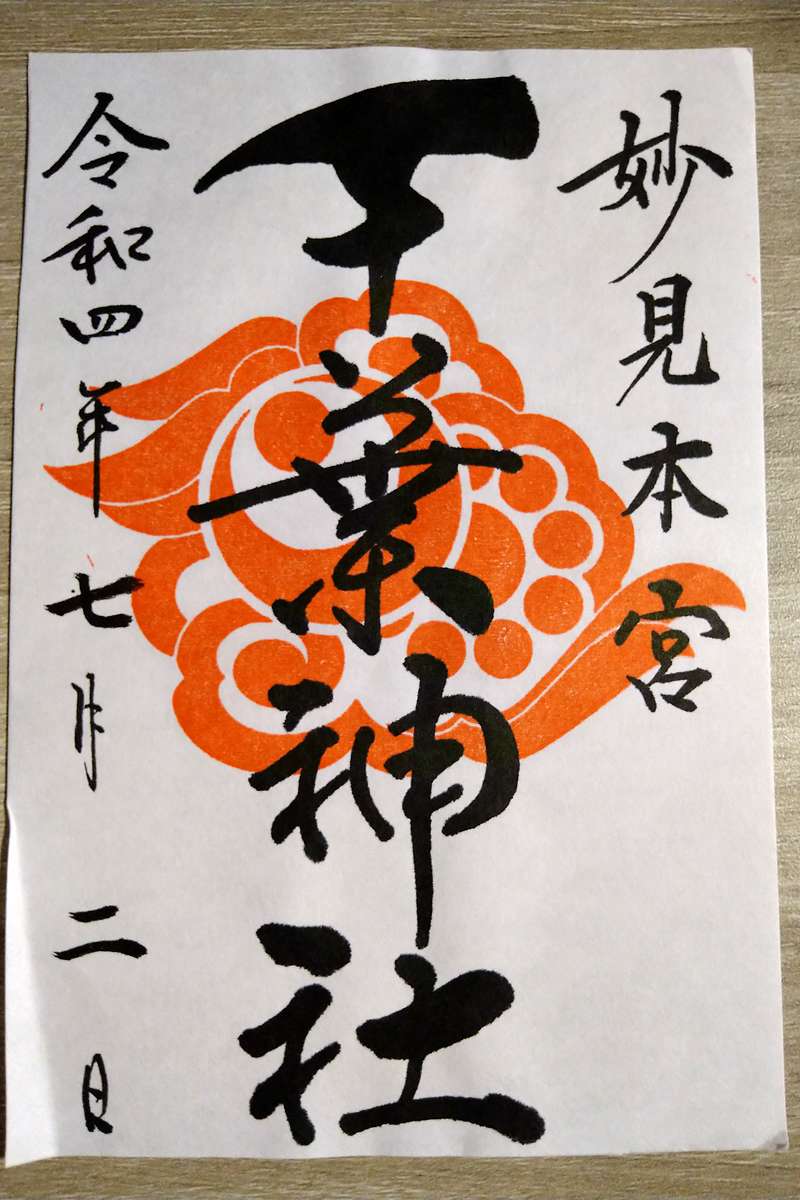 妙見本宮
千葉神社
令和四年七月二日